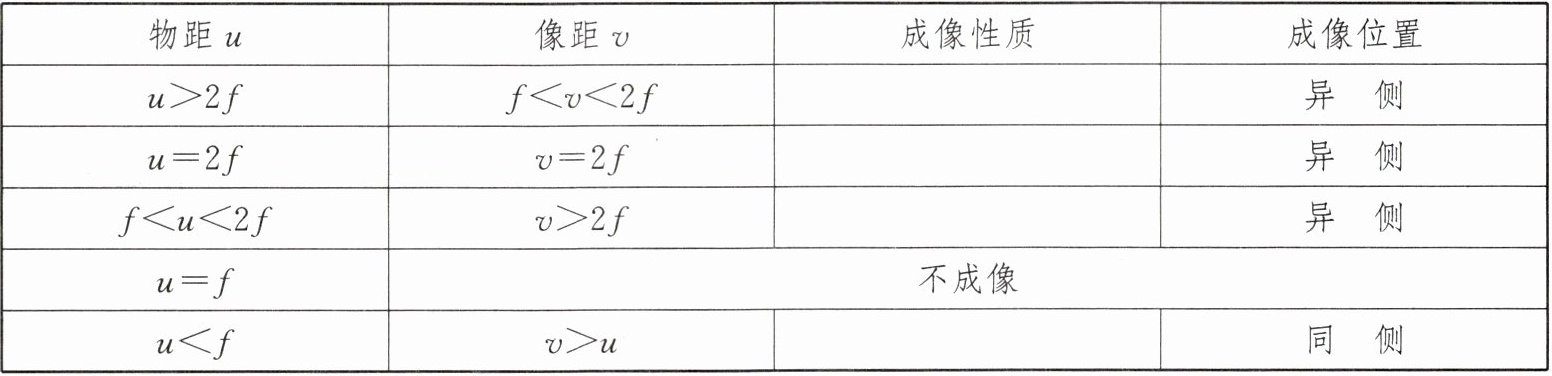 物距 u 像距 v 成像性质 成像位置
u>2f f<v<2f 异 侧
u=2f v=2f 异 侧
f<u<2f v>2f 异 侧
u=f 不成像
u<f v>u 同 侧